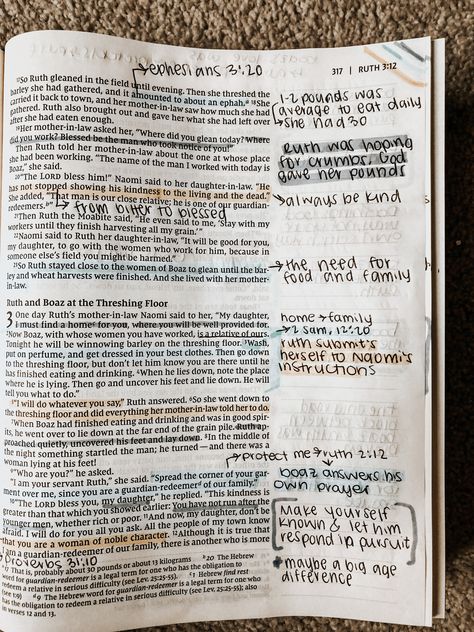 ephesians 3:20
317 | RUTH 3:12
17So Ruth gleaned in the field until evening. Then she threshed the
barley she had gathered, and it amounted to about an ephah.a 18She
carried it back to town, and her mother-in-law saw how much she had
gathered. Ruth also brought out and gave her what she had left over
after she had eaten enough.
19Her mother-in-law asked her, "Where did you glean today? Where
did you work? Blessed be the man who took notice of you!"
Then Ruth told her mother-in-law about the one at whose place
she had been working. "The name of the man I worked with today is
Boaz," she said.
20"The LORD bless him!" Naomi said to her daughter-in-law. "He
has not stopped showing his kindness to the living and the dead."
She added, "That man is our close relative; he is one of our guardian-
redeemers.b"
from bitter to blessed
21Then Ruth the Moabite said, "He even said to me, 'Stay with my
workers until they finish harvesting all my grain.'"
22Naomi said to Ruth her daughter-in-law, "It will be good for you,
my daughter, to go with the women who work for him, because in
someone else's field you might be harmed."
23So Ruth stayed close to the women of Boaz to glean until the bar-
ley and wheat harvests were finished. And she lived with her mother-
in-law.
Ruth and Boaz at the Threshing Floor
3 One day Ruth's mother-in-law Naomi said to her, "My daughter,
I must find a home for you, where you will be well provided for.
2Now Boaz, with whose women you have worked, is a relative of ours.
Tonight he will be winnowing barley on the threshing floor. 3Wash,
put on perfume, and get dressed in your best clothes. Then go down
to the threshing floor, but don't let him know you are there until he
has finished eating and drinking. 4When he lies down, note the place
where he is lying. Then go and uncover his feet and lie down. He will
tell you what to do."
5"I will do whatever you say," Ruth answered. 6So she went down to
the threshing floor and did everything her mother-in-law told her to do.
7When Boaz had finished eating and drinking and was in good spir-
its, he went over to lie down at the far end of the grain pile. Ruth ap-
proached quietly, uncovered his feet and lay down. 8In the middle of
the night something startled the man; he turned—and there was a
woman lying at his feet!
9"Who are you?" he asked.
"I am your servant Ruth," she said. "Spread the corner of your gar-
ment over me, since you are a guardian-redeemerc of our family."
10"The LORD bless you, my daughter," he replied. "This kindness is
greater than that which you showed earlier: You have not run after the
younger men, whether rich or poor. 11And now, my daughter, don't be
afraid. I will do for you all you ask. All the people of my town know
that you are a woman of noble character. 12Although it is true that
I am a guardian-redeemer of our family, there is another who is more
Proverbs 31:10
a 17 That is, probably about 30 pounds or about 13 kilograms b 20 The Hebrew
word for guardian-redeemer is a legal term for one who has the obligation to
redeem a relative in serious difficulty (see Lev. 25:25-55). c 9 The Hebrew word for guardian-redeemer is a legal term for one who
has the obligation to redeem a relative in serious difficulty (see Lev. 25:25-55); also
in verses 12 and 13.
1-2 pounds was
average to eat daily
she had 30
Ruth was hoping
for crumbs. God
gave her pounds
always be kind
the need for
food and family
home + family
2 Sam. 12:20
ruth submits
herself to Naomi's
instructions
protect me → ruth 2:12
boaz answers his
own prayer
Make yourself
known & let him
respond in pursuit
maybe a big age
difference